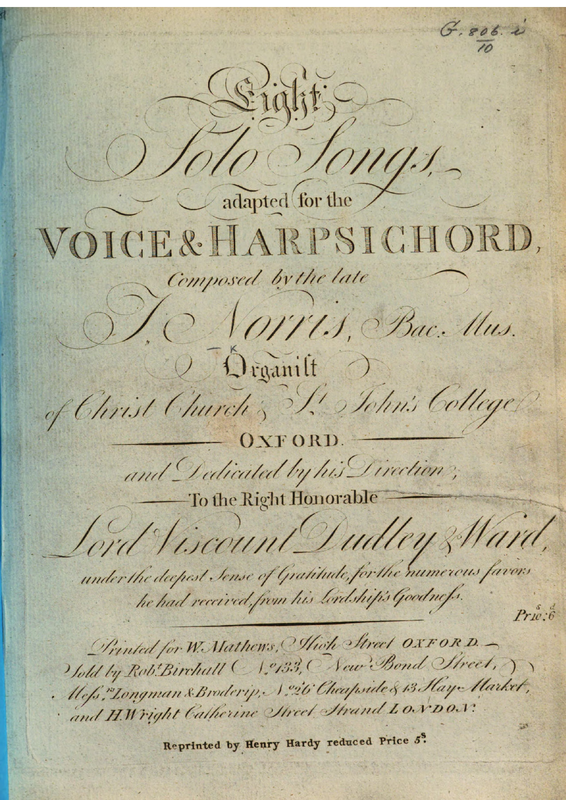 G. 806. i
10
Eight
Solo Songs,
adapted for the
VOICE & HARPSICHORD,
Composed by the late
T. Norris, Bac. Mus.
Organist
of Christ Church & St. John's College
OXFORD.
and Dedicated by his Direction,
To the Right Honorable
Lord Viscount Dudley & Ward,
under the deepest Sense of Gratitude, for the numerous favors
he had received, from his Lordship's Goodness.
Pr: 10s: 6d
Printed for W. Mathews, High Street OXFORD.
Sold by Robt. Birchall No. 133, New Bond Street,
Messrs. Longman & Broderip, No. 26 Cheapside & 13 Hay Market,
and H. Wright Catherine Street Strand LONDON.
Reprinted by Henry Hardy reduced Price 5s.